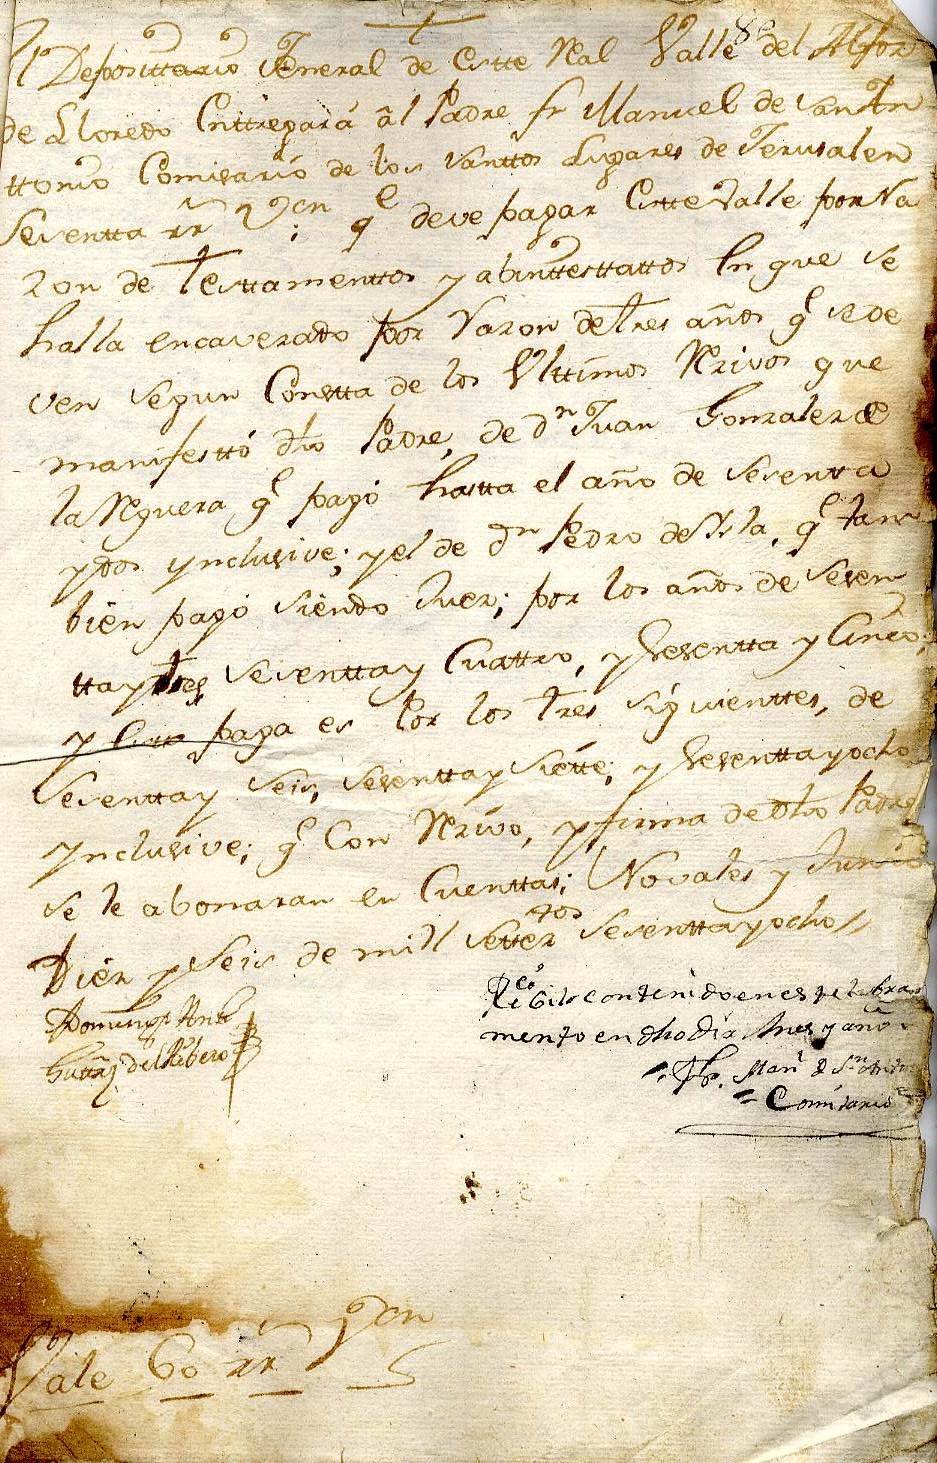 El Deposittario General de Estte Real Valle del Alfoz
de Lloredo Enttregará al Padre fr Manuel de San An
ttonio Comisario de los Santtos Lugares de Jerusalen
Sesentta rr Von; qe deve pagar Estte Valle por Ra
zon de Testtamenttos y abinttesttattos En que se
halla encaverado por Razon de tres años qe se de
ven segun Constta de los Ulttimos Rzivos que
manifesttó dho Padre, de Dn Juan Gonzalez de
la Reguera qe pagó hastta el año de Sesentta
y dos ynclusive; y el de Dn Pedro de Isla, qe tam
bien pagó siendo Juez; por los años de Sesen
tta y tres, Sesentta y Cuattro, y Sesentta y Cinco;
y Estta paga es Por los tres siguienttes, de
Sesentta y Seis, Sesentta y Siette; y Sesentta y ocho
ynclusive; qe Con Rzivo, y firma de dho Padre
se le abonaran en Cuenttas; Novales y Junio
Diez y Seis de mill Settezttos Sesentta y ocho
Domingo Antto
Guttrz del Ribero
Recibi lo contenido en este libra
mento en dho dia, mes y año
Fr. Manl de Sn Antto
Comisario
Vale 60 rr Von